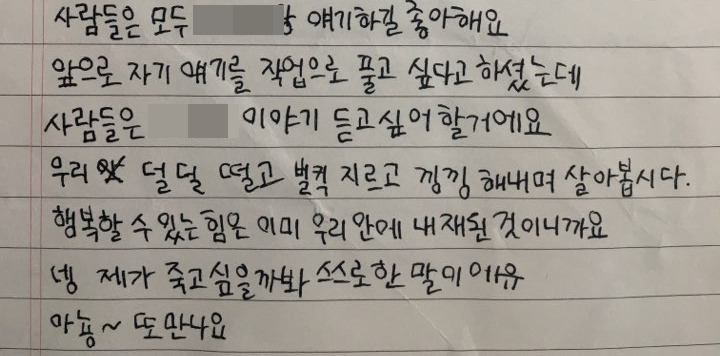 사람들은 모두 얘기하길 좋아해요
앞으로 자기 얘기를 작업으로 풀고 싶다고 하셨는데
사람들은 이야기 듣고 싶어 할거에요
우리 덜덜 떨고 벌컥 지르고 낑낑 해내며 살아봅시다.
행복할 수 있는 힘은 이미 우리 안에 내재된 것이니까요
넹 제가 죽고싶을까봐 스스로한 말이에유
마뇽~ 또만나요